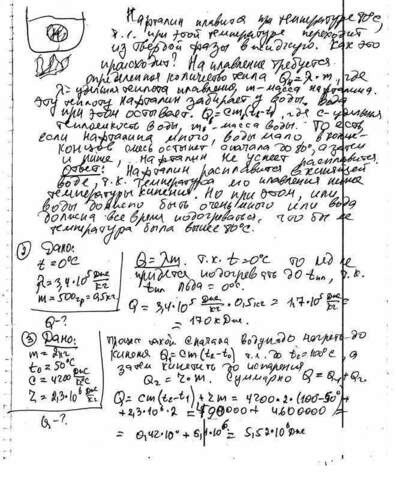 Нафталин плавится при температуре 80°С,
т.е. при этой температуре переходит
из твердой фазы в жидкую. Как это
происходит? На плавление требуется
определенная количество тепла Q = λ·m, где
λ - удельная теплота плавления, m - масса нафталина.
Эту теплоту нафталин забирает у воды, вода
при этом остывает. где с - удельная
теплоемкость воды, - масса воды. То есть
если нафталина много, воды мало в конце
концов смесь остынет сначала до 80°, а затем
и ниже, нафталин не успеет расплавится.
Ответ: Нафталин расплавится в кипящей
воде, т.к. температура его плавления ниже
температуры кипения. Но при этом, или
воды должно быть очень много или вода
должна все время подогреваться, что бы не
температура была выше 80°С.
2) Дано:
t = 0°C
λ = 3,4·10⁵ Дж/кг
m = 500гр = 0,5кг
Q - ?
Q = λm. т.к. t = 0°C то лёд не
придется подогревать до tпл, т.к.
tпл льда = 0°С.
Q = 3,4·10⁵ Дж/кг · 0,5кг = 1,7·10⁵ Дж =
= 170 кДж.
3) Дано:
m = 2кг
t₀ = 50°C
c = 4200 Дж/кг°С
Z = 2,3·10⁶ Дж/кг
Q - ?
сначала воду надо нагреть до
кипения Q₁ = cm(t₂-t₀) т.е. до t₂ = 100°C, а
затем кипятить до испарения
Q₂ = Z·m. Суммарно Q = Q₁ + Q₂
Q = cm(t₂-t₁) + Zm = 4200·2·(100-50°) +
+ 2,3·10⁶·2 = 4600000 =
= 0,42·10⁶ + = 5,52·10⁶ Дж